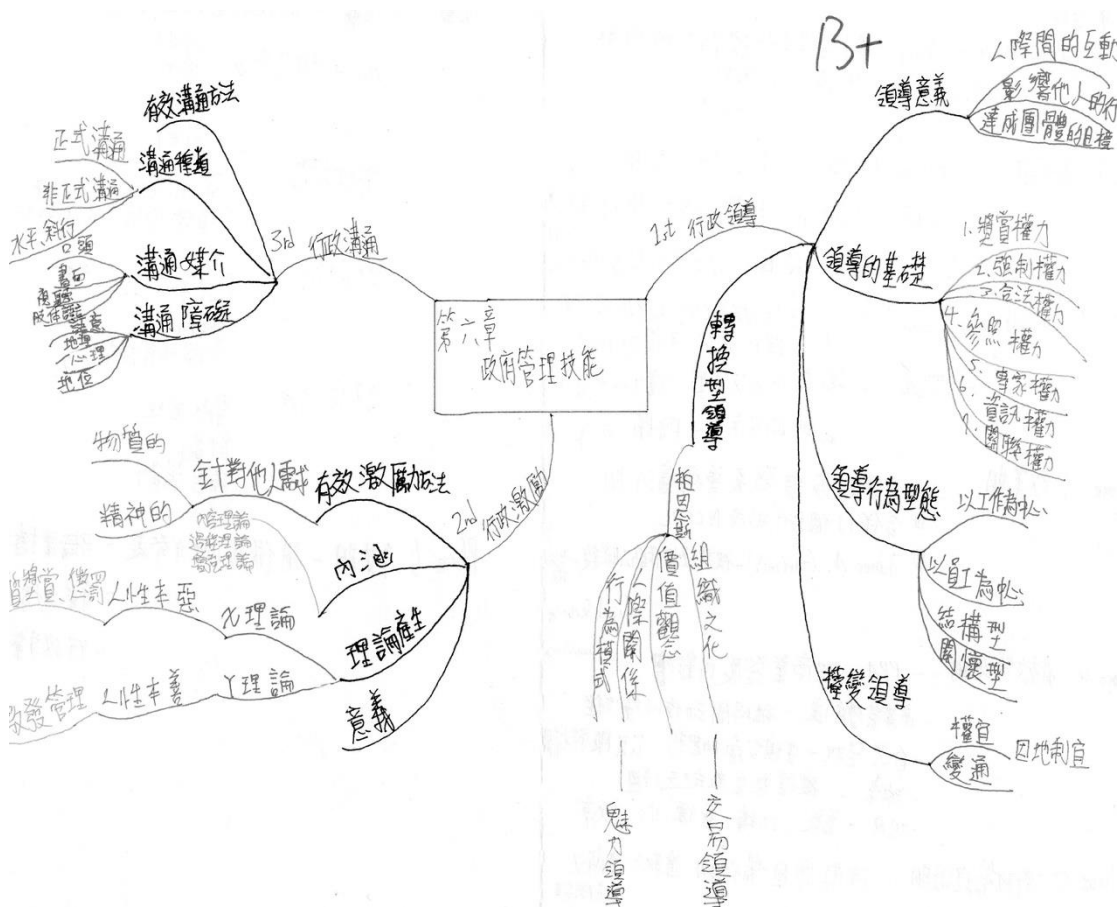 B+
第六章
政府管理技能
1st 行政領導
領導意義
人際間的互動
影響他人的行
達成團體的目標
領導的基礎
1.獎賞權力
2.強制權力
3.合法權力
4.參照權力
5.專家權力
6.資訊權力
7.關聯權力
領導行為型態
以工作為中心
以員工為中心
結構型
關懷型
權變領導
權宜
變通
因地制宜
轉換型領導
組織文化
價值觀念
人際關係
行為模式
交易領導
魅力領導
2nd 行政激勵
有效激勵方法
針對他人需求
物質的
精神的
內涵
內容理論
過程理論
增強理論
理論產生
X理論
人性本惡
獎賞、懲罰
Y理論
人性本善
啟發管理
意義
3rd 行政溝通
有效溝通方法
溝通種類
正式溝通
非正式溝通
水平、斜行
溝通媒介
口頭
書面
肢體語言
溝通障礙
語意
地理
心理
地位